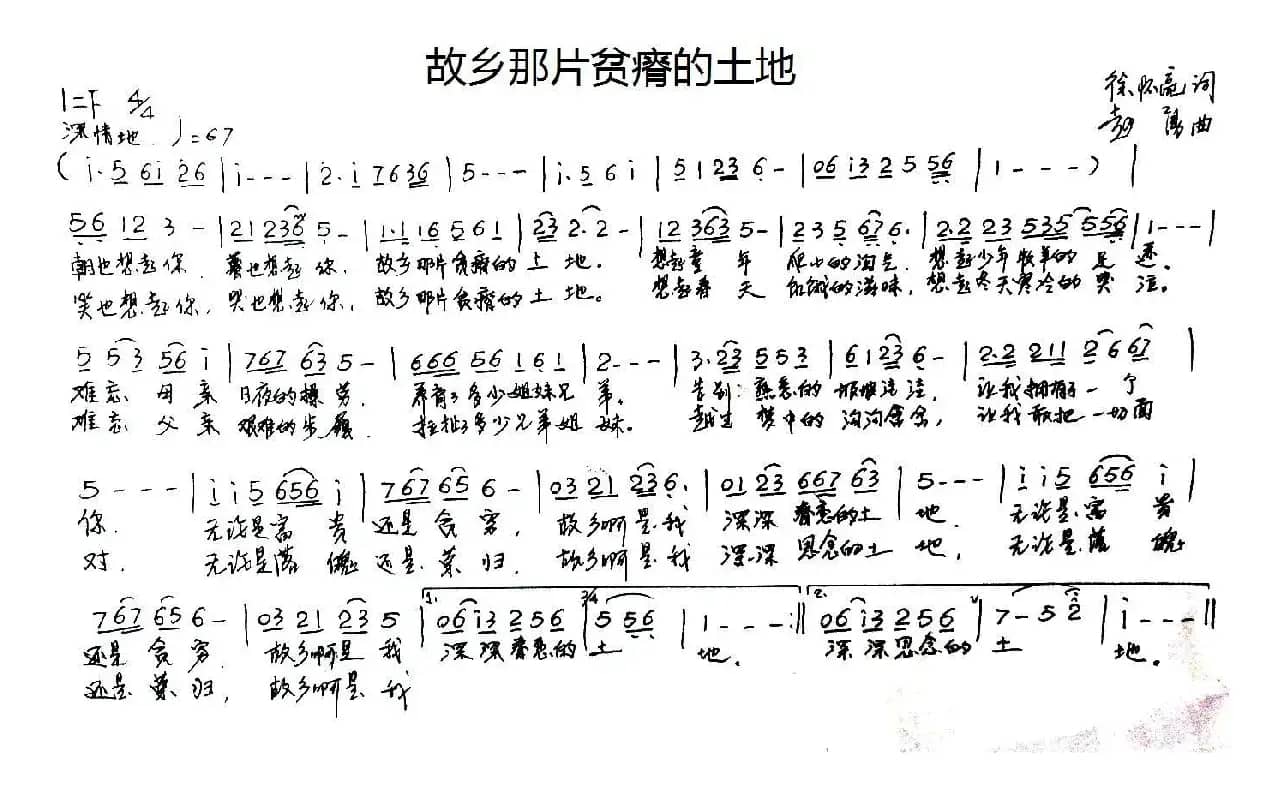 故乡那片贫瘠的土地
徐怀亮词
曲
1=F 4/4
深情地 ♩=67
(i·5 6i 26 | i--- | 2·i 7636 | 5--- | i·5 6 i | 5 1 23 6- | 06 i3 2 5 56 | 1---) |
56 12 3- | 21 236 5- | 1·1 16 5 6 1 | 23 2·2- | 12 363 5- | 2 3 5 67 6· | 2·2 23 535 556 | 1--- |
朝也想起你, 暮也想起你, 故乡那片贫瘠的土地。 想起童年 爬山的淘气, 想起少年牧羊的足迹。
哭也想起你, 笑也想起你, 故乡那片贫瘠的土地。 想起春天 的滋味, 想起冬天寒冷的哭泣。
5 53 56 i | 767 63 5- | 666 56 1 6 1 | 2--- | 3·23 5 5 3 | 61 23 6- | 2·2 211 2 6 67 |
难忘 母亲 日夜的操劳, 养育了多少姐妹兄弟。 告别 熟悉的 让我拥有一个
难忘 父亲 艰难的步履, 拉扯了多少兄弟姐妹。 梦中的 沟沟 让我敢把一切面
5--- | i i 5 656 i | 767 65 6- | 03 21 23 6· | 01 23 667 63 | 5--- | i i 5 656 i |
你, 无论是富贵 还是贫穷, 故乡啊是我 深深眷恋的土地, 无论是富贵
对, 无论是落魄 还是荣归, 故乡啊是我 深深思念的土地, 无论是落魄
767 65 6- | 03 21 23 5 | 1. 06 i3 2 56 | 3/4 5 56 | 1---:‖ 2. 06 i3 2 56 | 7-5 2 | i---‖
还是贫穷, 故乡啊是我 深深眷恋的土地。 深深思念的土地。
还是荣归, 故乡啊是我